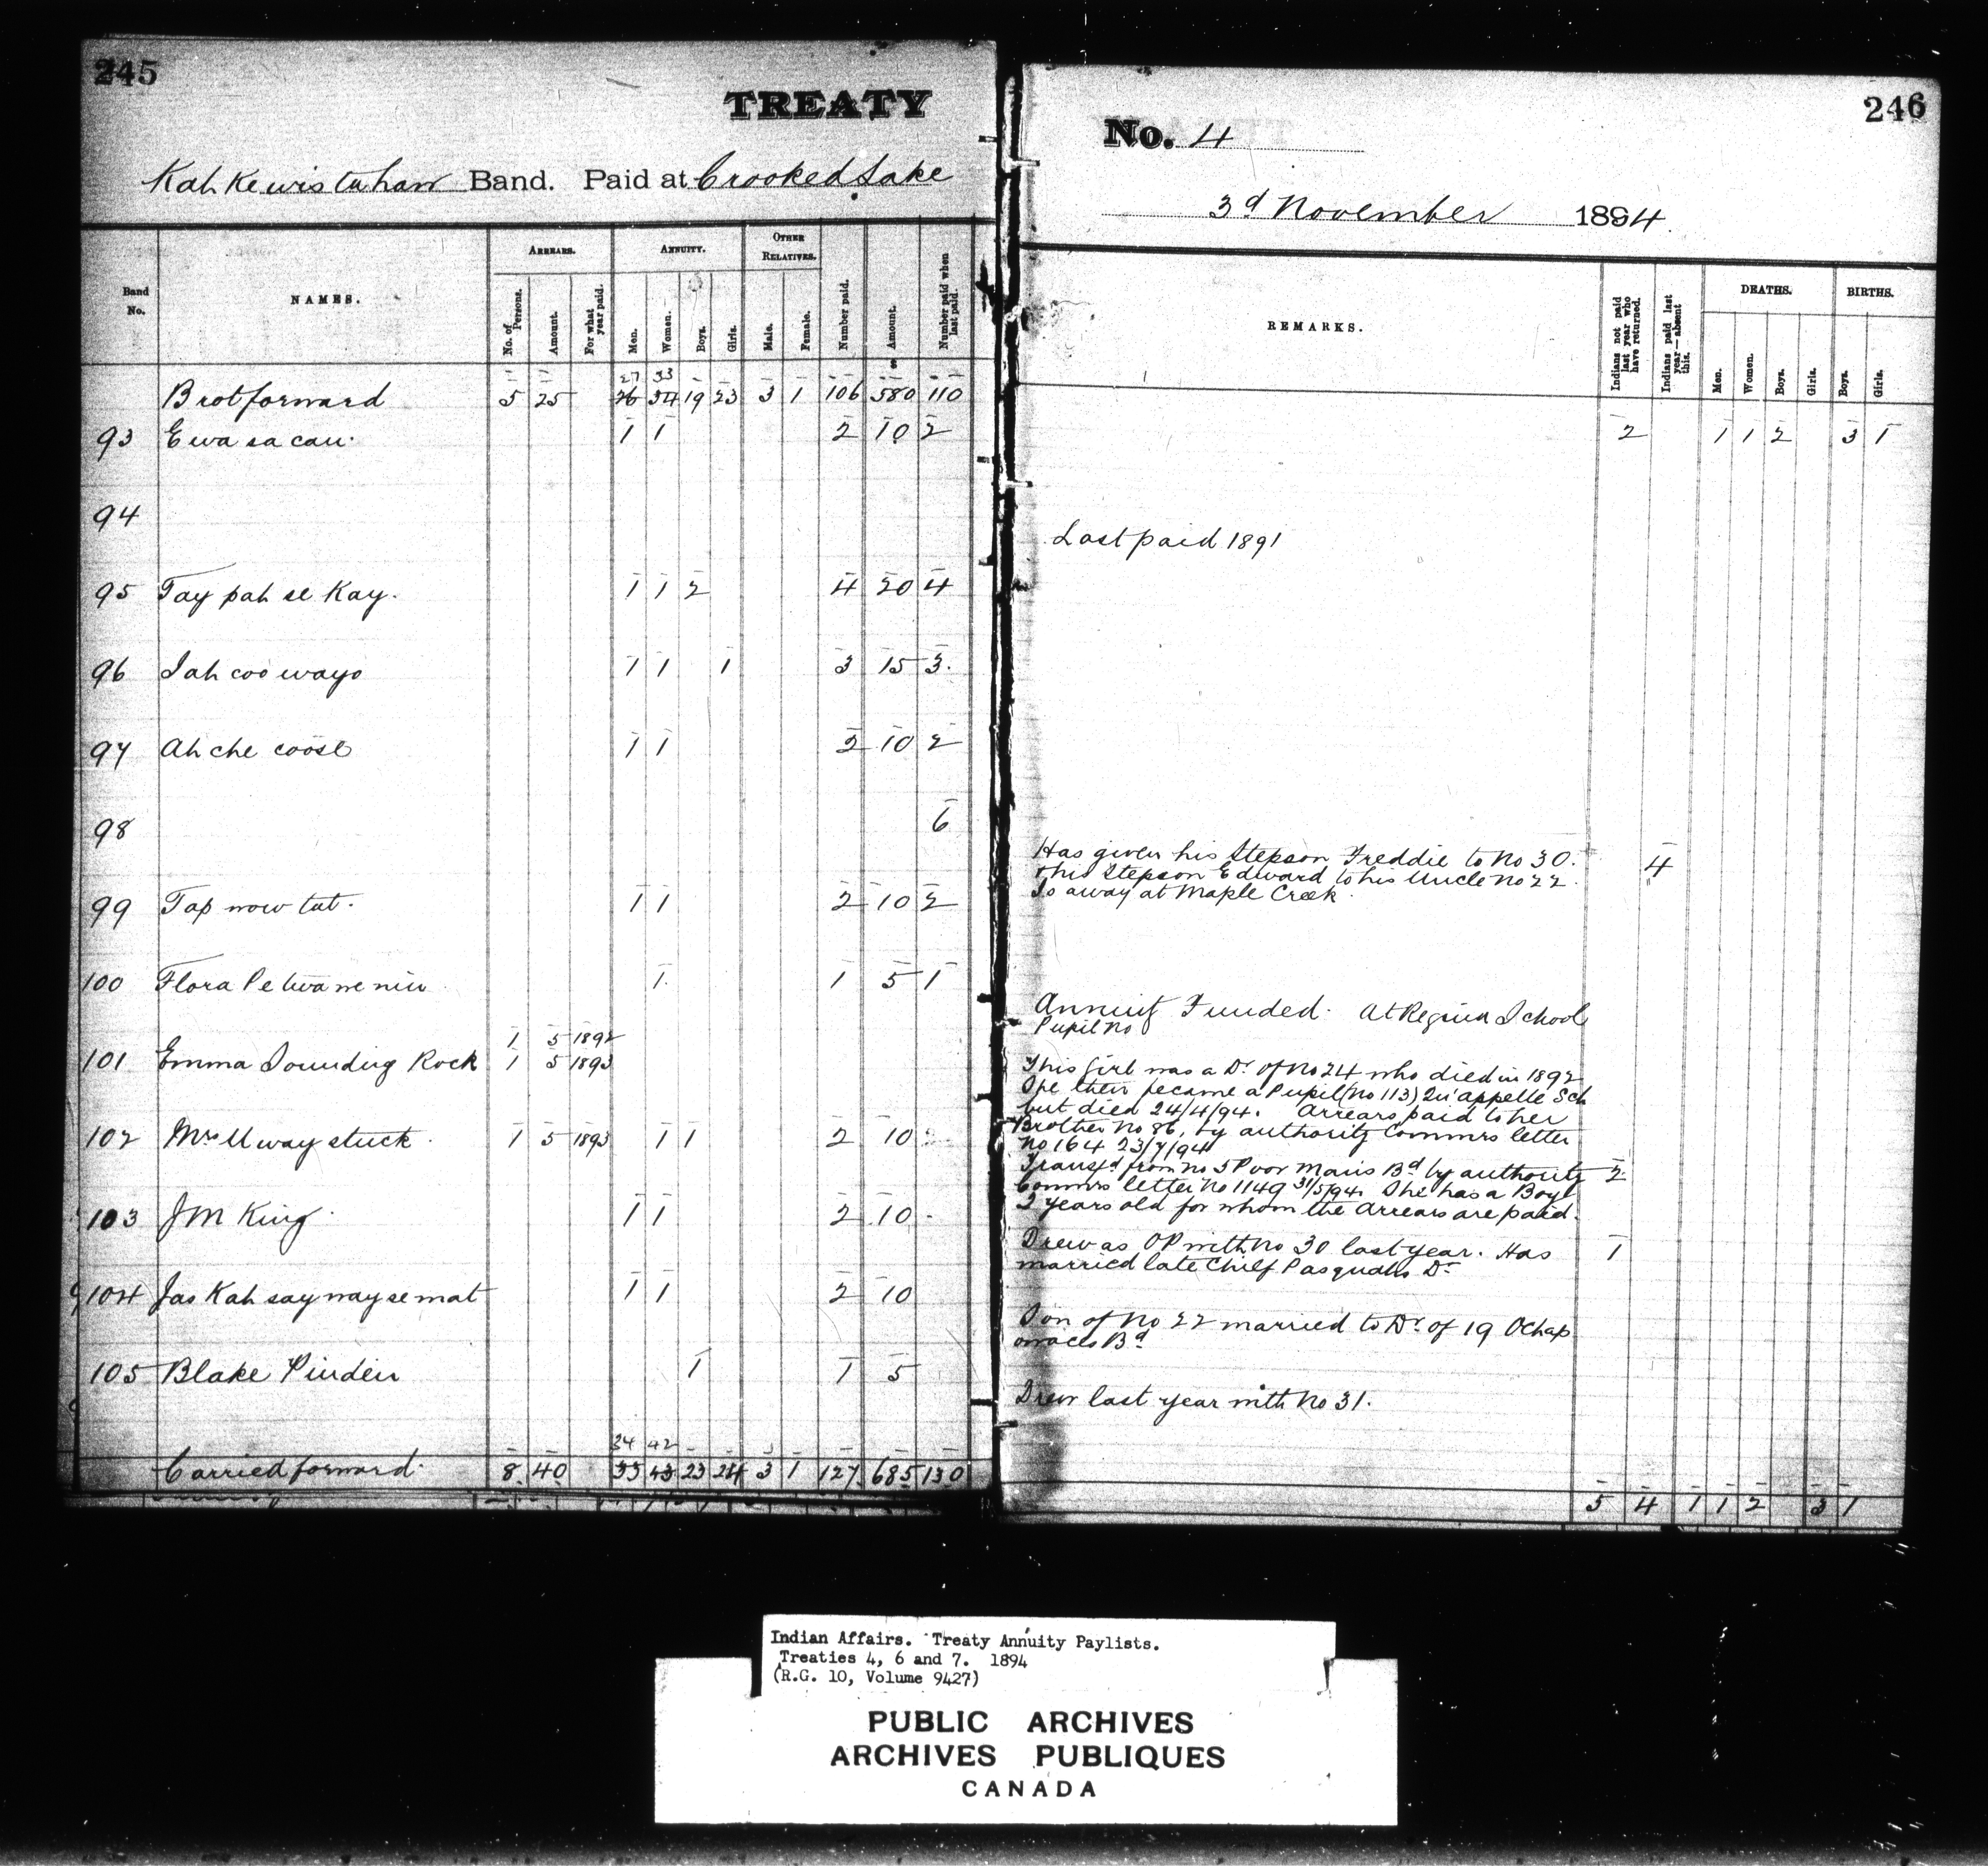 245
TREATY
Kah Ke wis ta haw Band. Paid at Crooked Lake
Band No.
NAMES.
ARREARS.
No. of Persons.
Amount.
For what year paid.
ANNUITY.
Men.
Women.
Boys.
Girls.
OTHER RELATIVES.
Male.
Female.
Number paid.
Amount.
Number paid when last paid.
27 33
Brot forward 5 25 26 34 19 23 3 1 106 580 110
93 E wa sa cau 1 1 2 10 2
94
95 Tay pah se Kay. 1 1 2 4 20 4
96 Sah coo wayo 1 1 1 3 15 3
97 Ah che coose 1 1 2 10 2
98 6
99 Tap now tat. 1 1 2 10 2
100 Flora 1 1 5 1
1 5 1892
101 Emma Sounding Rock 1 5 1893
102 Mrs U way stuck 1 5 1893 1 1 2 10
103 J M King 1 1 2 10
104 Jas Kah say way se mat 1 1 2 10
105 Blake Pinder 1 1 5
34 42
Carried forward 8 40 33 43 23 24 3 1 127 685 130
246
No. 4
3d November 1894
REMARKS.
Indians not paid last year who have returned.
Indians paid last year—absent this.
DEATHS.
Men.
Women.
Boys.
Girls.
BIRTHS.
Boys.
Girls.
2 1 1 2 3 1
Last paid 1891
Has given his Stepson Freddie to No 30.
& his Stepson Edward to his Uncle No 22. 4
Is away at Maple Creek
Annuity Funded. At Regina School
Pupil No
This Girl was a Dr. of No 24 who died in 1892
She then became a Pupil (No 113) Qu'appelle Sch
but died 24/4/94. Arrears paid to her
Brother No 86, by authority Commrs letter
No 164 23/7/94
Transfd from No 5 Poor Man's Bd by authority 2
Commrs letter No 1149 31/5/94. She has a Boy
2 years old for whom the Arrears are paid.
Drew as OP with No 30 last year. Has 1
married late Chief Pasquahs Dr
Son of No 22 married to Dr. of 19 Ochap
owaces Bd
Drew last year with No 31.
5 4 1 1 2 3 1
Indian Affairs. Treaty Annuity Paylists.
Treaties 4, 6 and 7. 1894
(R.G. 10, Volume 9427)
PUBLIC ARCHIVES
ARCHIVES PUBLIQUES
CANADA